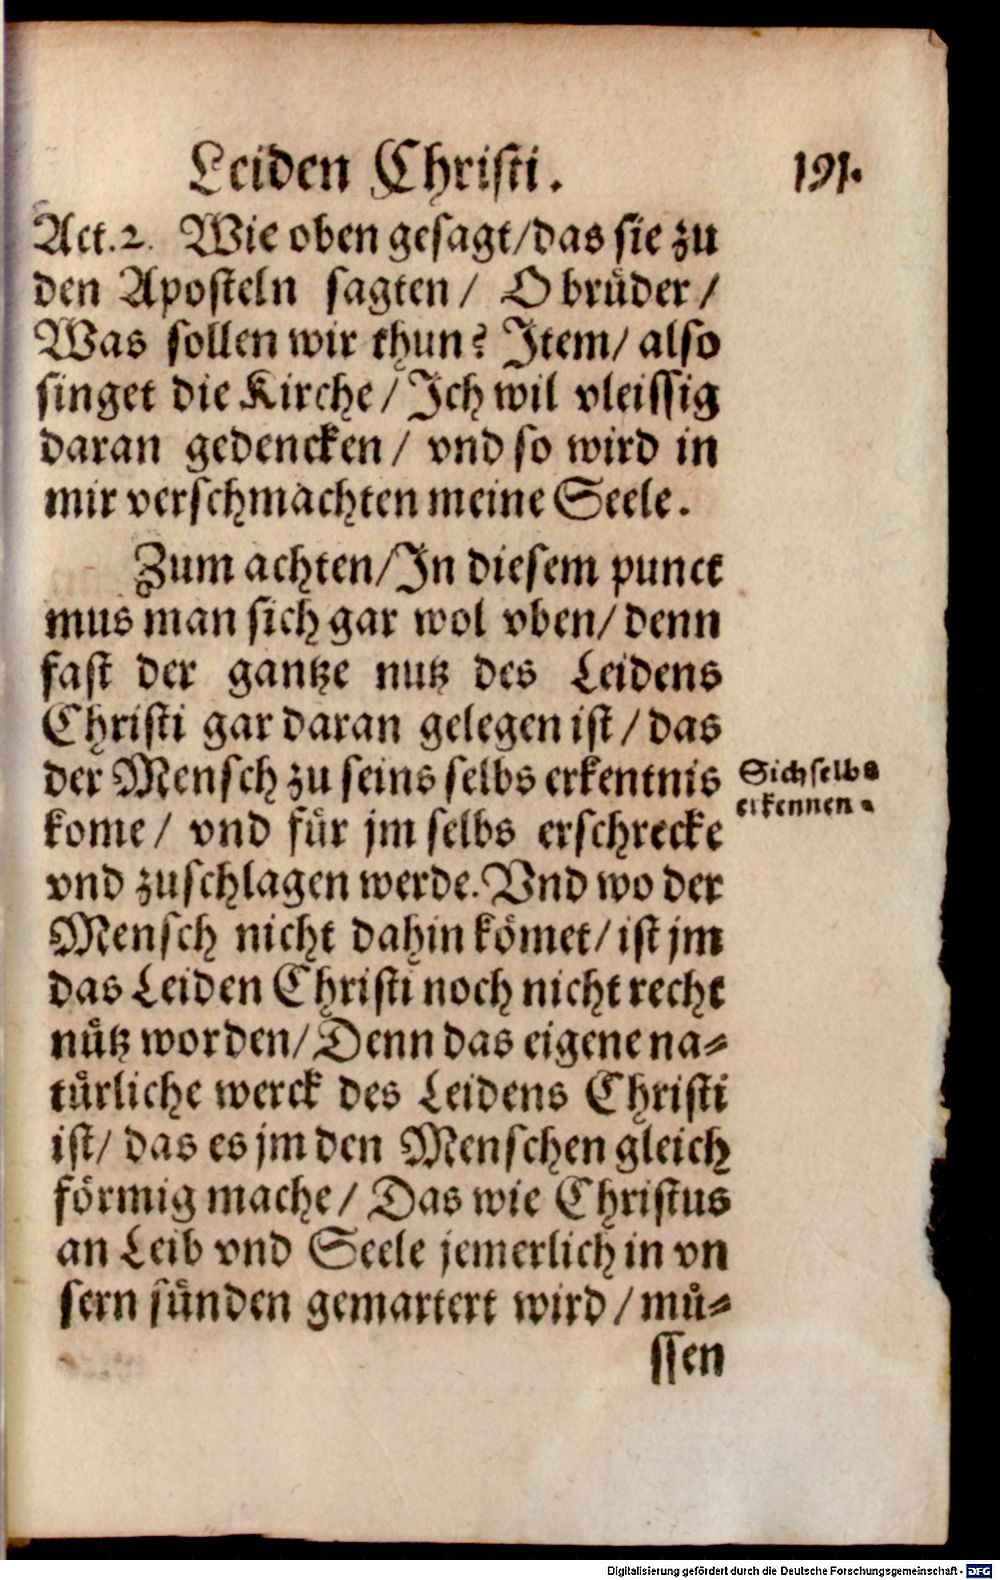 Leiden Christi. 191.
Act.2. Wie oben gesagt/das sie zu
den Aposteln sagten/ O brüder/
Was sollen wir thun? Item/ also
singet die Kirche/Ich wil vleissig
daran gedencken/ vnd so wird in
mir verschmachten meine Seele.
Zum achten/In diesem punct
mus man sich gar wol vben/ denn
fast der gantze nutz des Leidens
Christi gar daran gelegen ist/das
der Mensch zu seins selbs erkentnis
kome/ vnd für jm selbs erschrecke
vnd zuschlagen werde.Vnd wo der
Mensch nicht dahin kömet/ist jm
das Leiden Christi noch nicht recht
nütz worden/Denn das eigene na-
türliche werck des Leidens Christi
ist/ das es jm den Menschen gleich
förmig mache/ Das wie Christus
an Leib vnd Seele jemerlich in vn
sern sünden gemartert wird/mü-
ssen
Sich selbs
erkennen.
Digitalisierung gefördert durch die Deutsche Forschungsgemeinschaft - DFG